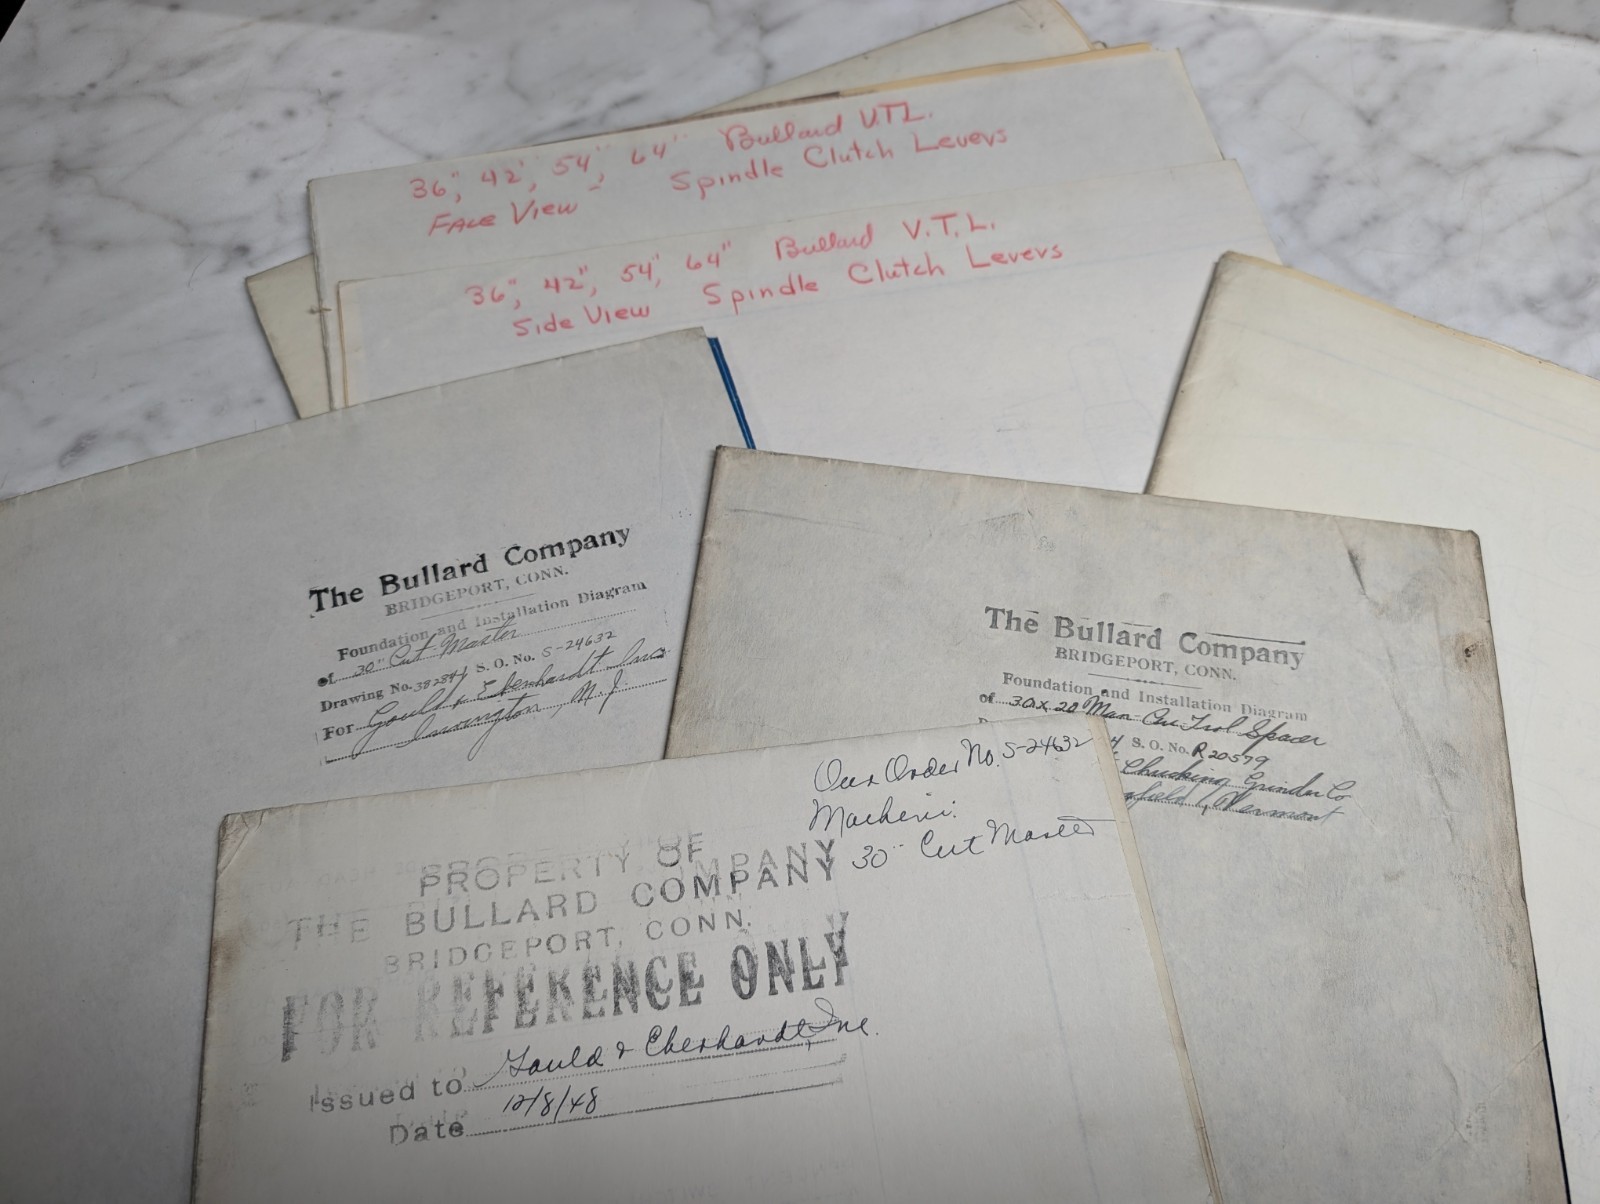 36", 42", 54", 64" Bullard V.T.L.
Face View Spindle Clutch Levers
36", 42", 54", 64" Bullard V.T.L.
Side View Spindle Clutch Levers
The Bullard Company
BRIDGEPORT, CONN.
Foundation and Installation Diagram
of 30" Cut Master
Drawing No. S. O. No. S-24632
For Gould & Eberhardt Inc.
Irvington, N.J.
The Bullard Company
BRIDGEPORT, CONN.
Foundation and Installation Diagram
of 30 x 20 Man-Au-Trol Spacer
S. O. No. R 20579
Chucking Grinder Co
Vermont
Our Order No. S-24632
Machine:
30" Cut Master
PROPERTY OF
THE BULLARD COMPANY
BRIDGEPORT, CONN.
FOR REFERENCE ONLY
Issued to Gould & Eberhardt, Inc.
Date 12/8/48